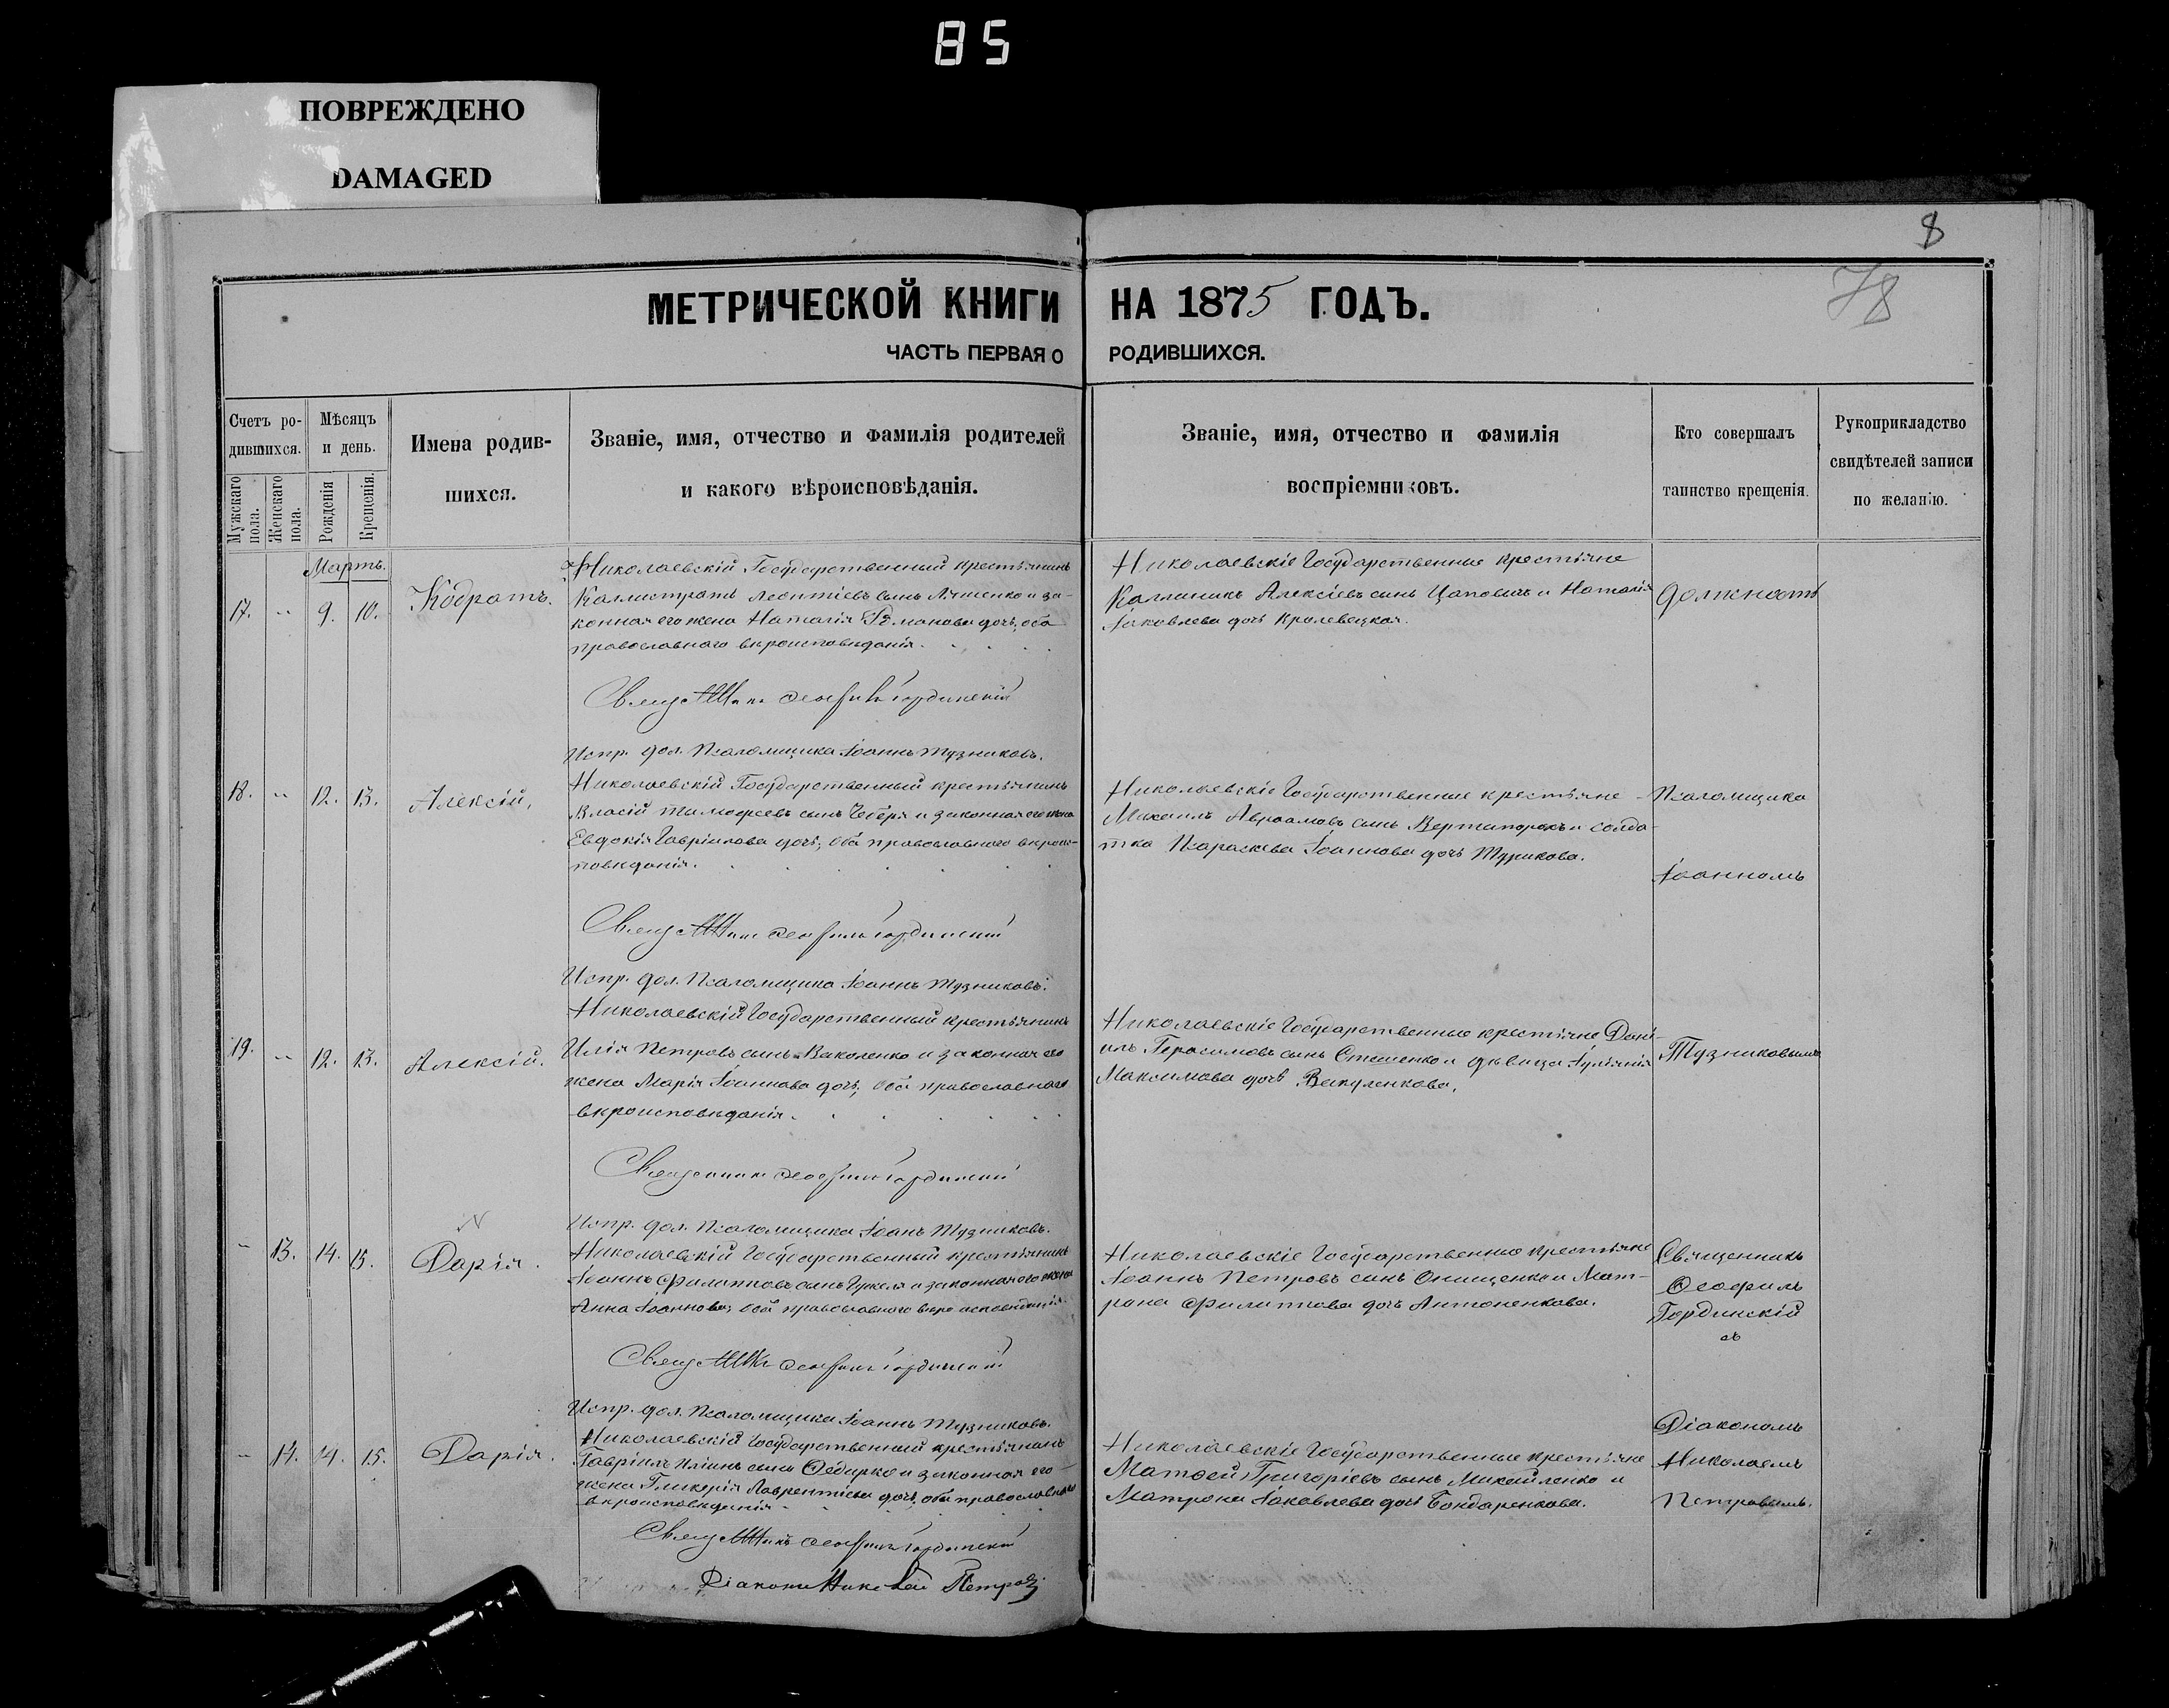 85
ПОВРЕЖДЕНО
DAMAGED
8
78
МЕТРИЧЕСКОЙ КНИГИ НА 1875 ГОДЪ.
ЧАСТЬ ПЕРВАЯ О РОДИВШИХСЯ.
Счетъ ро-
дившихся.
Мужскаго пола.
Женскаго пола.
Мѣсяцъ
и день.
Рожденія
Крещенія.
Имена родив-
шихся.
Званіе, имя, отчество и фамилія родителей
и какого вѣроисповѣданія.
Званіе, имя, отчество и фамилія
воспріемниковъ.
Кто совершалъ
таинство крещенія.
Рукоприкладство
свидѣтелей записи
по желанію.
Мартъ.
17. " 9. 10.
Кодратъ.
Николаевскій Государственный крестьянинъ
Каллистратъ Леонтіевъ сынъ и за-
конная его жена Наталія дочь, оба
православнаго вѣроисповѣданія.
Николаевскіе Государственные крестьяне
Каллиникъ Алексіевъ сынъ Цаповичъ и Наталія
Іаковлева дочь Кролевецкая.
должность
Священникъ Ѳеофилъ Гординскій
Испр. дол. Псаломщика Іоаннъ Тузниковъ.
18. " 12. 13.
Алексій.
Николаевскій Государственный крестьянинъ
Власій Тимофеевъ сынъ Чеберя и законная его жена
Евдокія Гавріилова дочь, оба православнаго вѣроис-
повѣданія.
Николаевскіе Государственные крестьяне
Михаилъ Авраамовъ сынъ Вертипорохъ и солда-
тка Параскева Іоаннова дочь
Псаломщика
Іоанномъ
Священникъ Ѳеофилъ Гординскій
Испр. дол. Псаломщика Іоаннъ Тузниковъ.
19. " 12. 13.
Алексій.
Николаевскій Государственный крестьянинъ
Илія Петровъ сынъ Ваколенко и законная его
жена Марія Іоаннова дочь, оба православнаго
вѣроисповѣданія.
Николаевскіе Государственные крестьяне Дані-
илъ Герасимовъ сынъ Стешенко и дѣвица Іуліанія
Максимова дочь Вакуленкова.
Тузниковымъ
Священникъ Ѳеофилъ Гординскій
Испр. дол. Псаломщика Іоанъ Тузниковъ.
" 13. 14. 15.
Дарія.
Николаевскій Государственный крестьянинъ
Іоаннъ Филипповъ сынъ и законная его жена
Анна Іоаннова, оба православнаго вѣроисповѣданія.
Николаевскіе Государственные крестьяне
Іоаннъ Петровъ сынъ Онищенко и Мат-
рона Филиппова дочь Антоненкова.
Священникъ
Ѳеофилъ
Гординскій
съ
Священникъ Ѳеофилъ Гординскій
Испр. дол. Псаломщика Іоаннъ Тузниковъ.
" 14. 14. 15.
Дарія.
Николаевскій Государственный крестьянинъ
Гавріилъ Иліинъ сынъ Ѳедирко и законная его
жена Гликерія Лаврентіева дочь, оба православнаго
вѣроисповѣданія.
Николаевскіе Государственные крестьяне
Матѳей Григоріевъ сынъ Михайленко и
Матрона Іаковлева дочь Бондаренкова.
Діакономъ
Николаемъ
Петровымъ.
Священникъ Ѳеофилъ Гординскій
Діаконъ Николай Петровъ